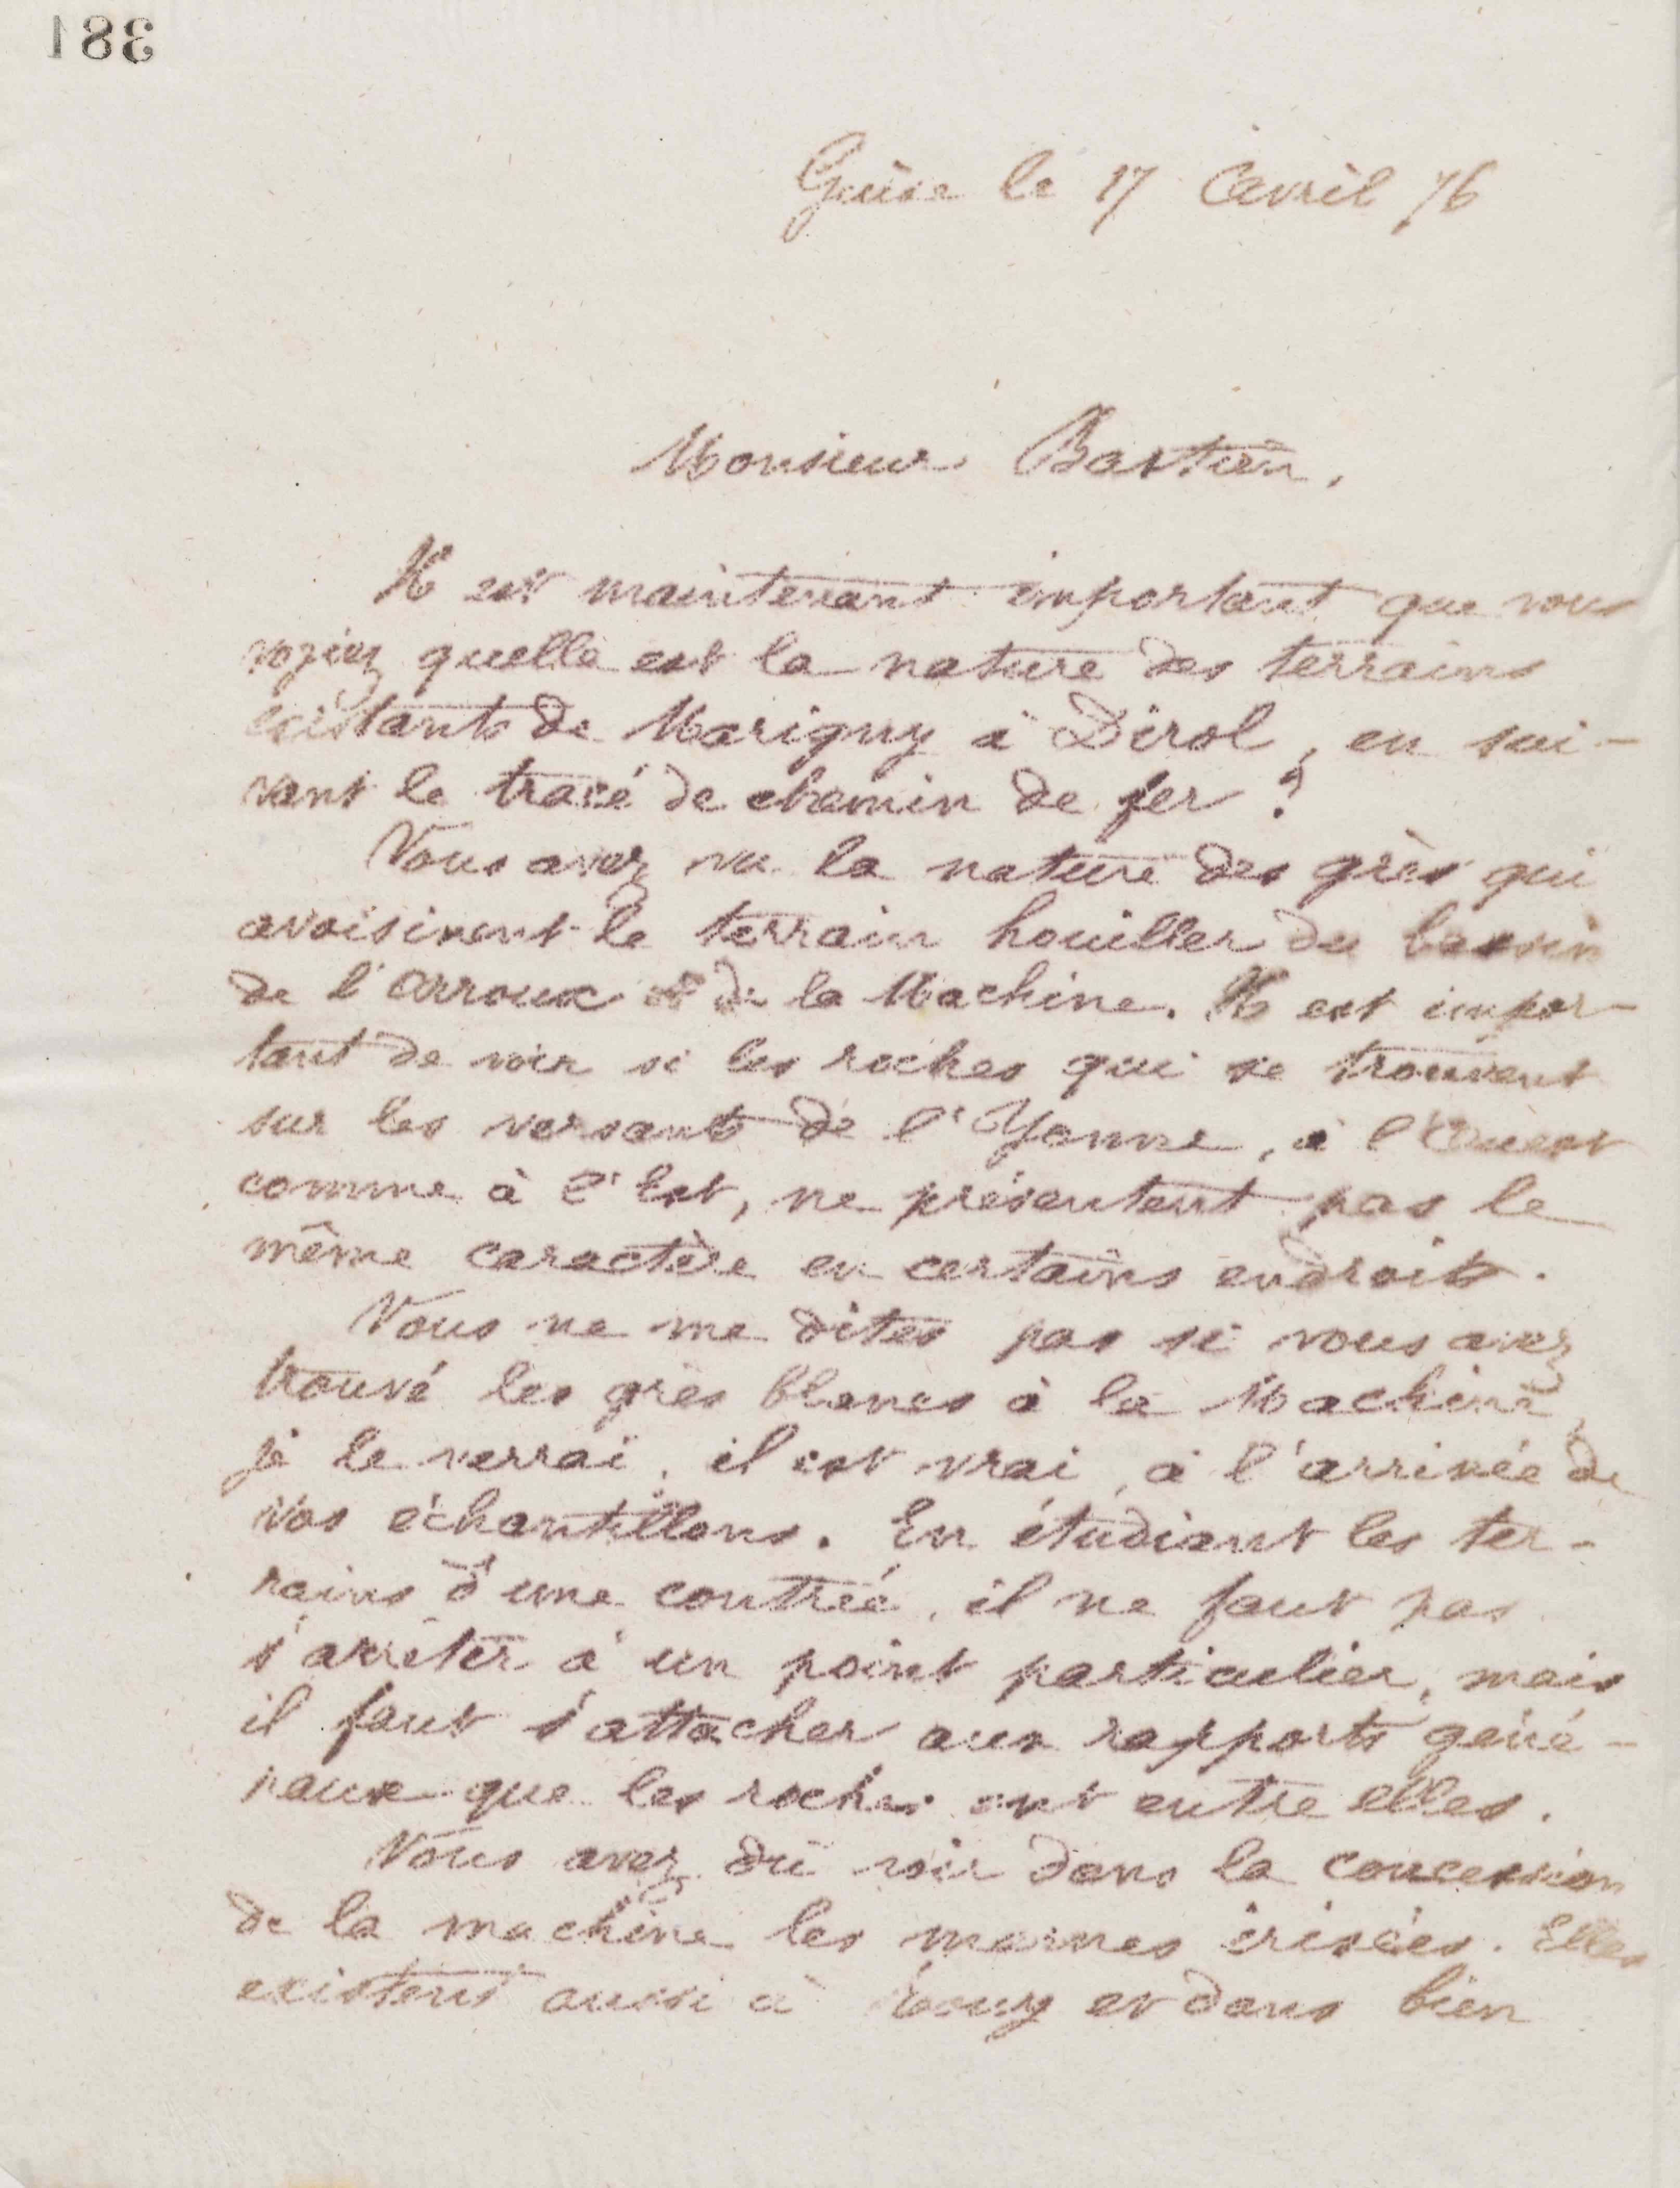 381
Guise le 17 Avril 76
Monsieur Bastien,
Il est maintenant important que vous
voyiez quelle est la nature des terrains
existants de Marigny à Dirol, en sui-
vant le tracé de chemin de fer ?
Vous avez vu la nature des grès qui
avoisinent le terrain houiller du bassin
de l'Arroux et de la Machine. Il est impor-
tant de voir si les roches qui se trouvent
sur les versants de l'Yonne, à l'Ouest
comme à l'Est, ne présentent pas le
même caractère en certains endroits.
Vous ne me dites pas si vous avez
trouvé les grès blancs à la Machine,
je le verrai, il est vrai, à l'arrivée de
vos échantillons. En étudiant les ter-
rains d'une contrée, il ne faut pas
s'arrêter à un point particulier, mais
il faut s'attacher aux rapports géné-
raux que les roches ont entre elles.
Vous avez dû voir dans la concession
de la machine les marnes irisées. Elles
existent aussi à et dans bien